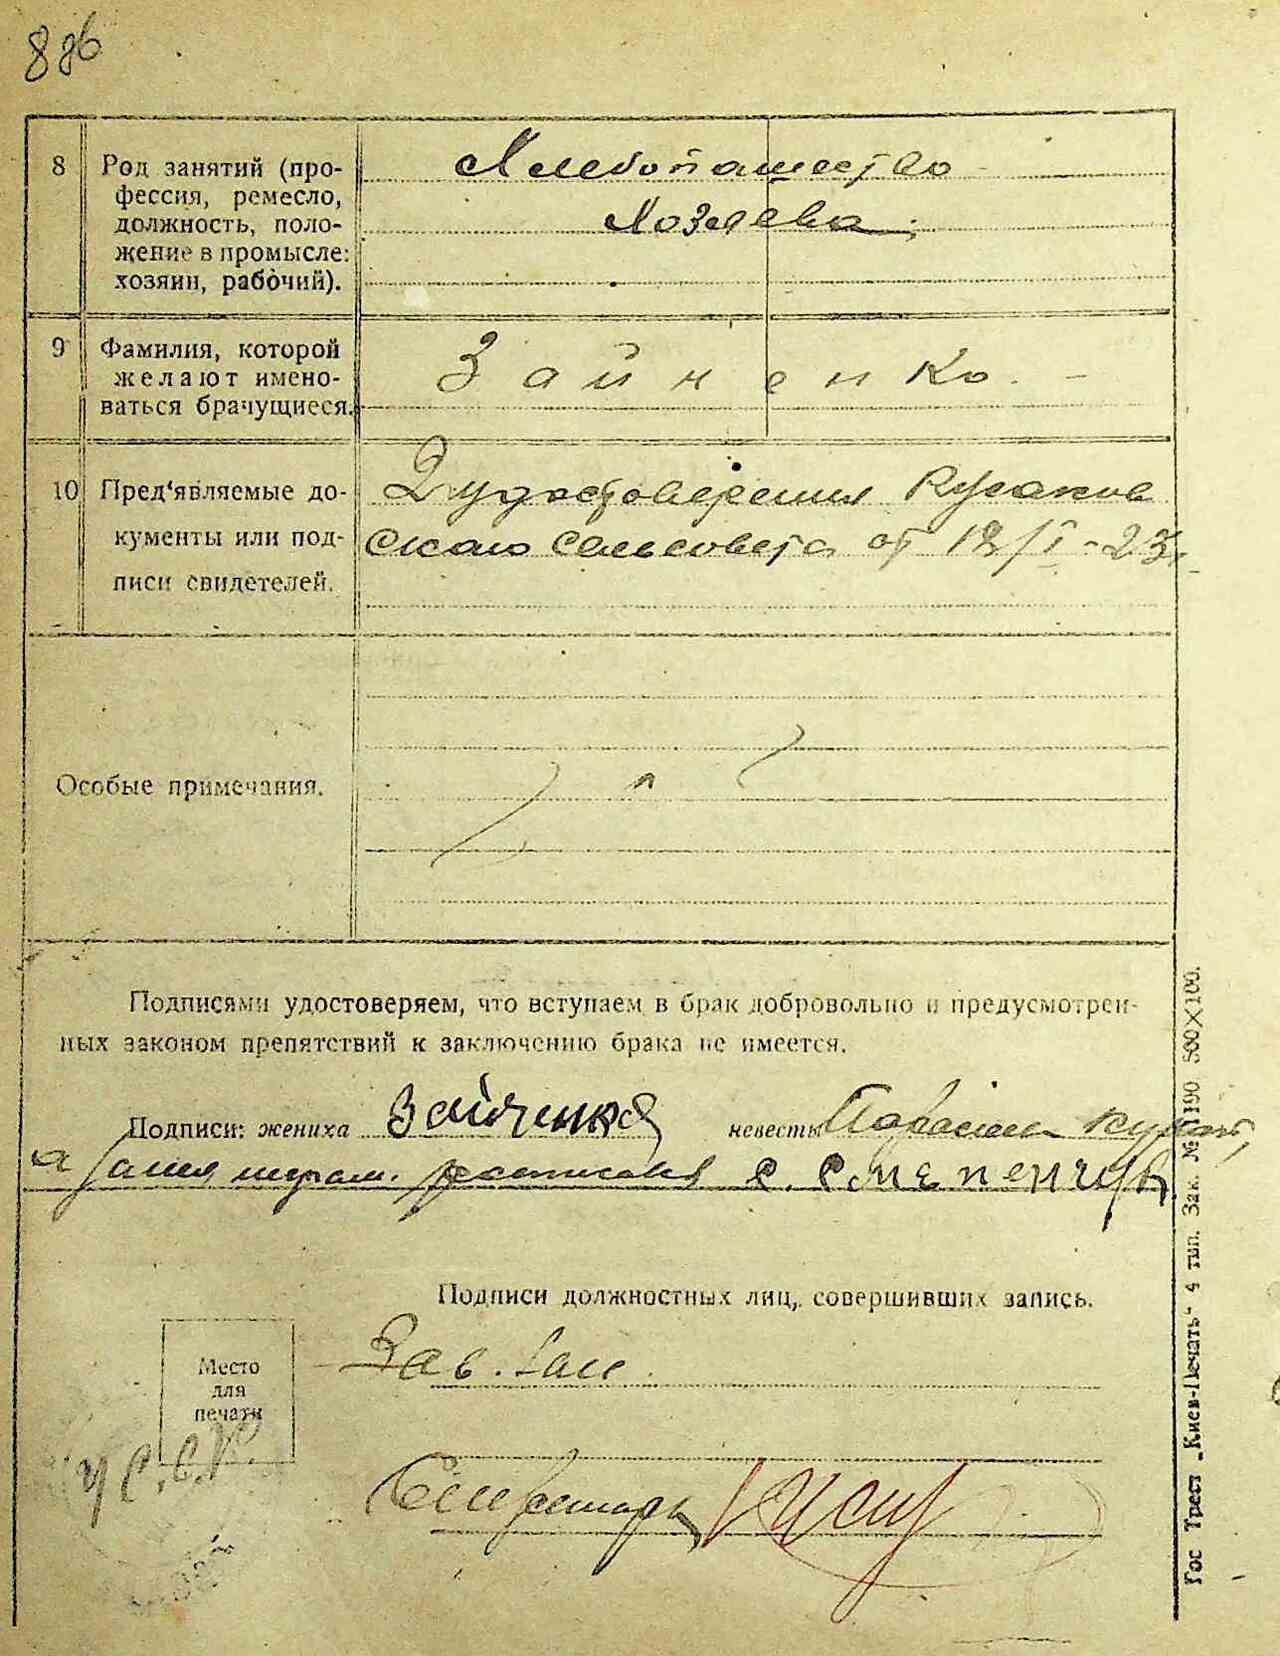 8
Род занятий (про-
фессия, ремесло,
должность, поло-
жение в промысле:
хозяин, рабочий).
Хлебопашество
Хозяева
9
Фамилия, которой
желают имено-
ваться брачущиеся.
Зайченко
10
Пред'являемые до-
кументы или под-
писи свидетелей.
2 удостоверения
сельсовета от 18/I-23
Особые примечания.
Подписями удостоверяем, что вступаем в брак добровольно и предусмотрен-
ных законом препятствий к заключению брака не имеется.
Подписи: жениха Зайченко невесты
а
Подписи должностных лиц, совершивших запись.
Место
для
печати
Зав.
Секретарь
Гос Трест „Киев-Печать" 4 тип. Зак. № 1190 500×100.